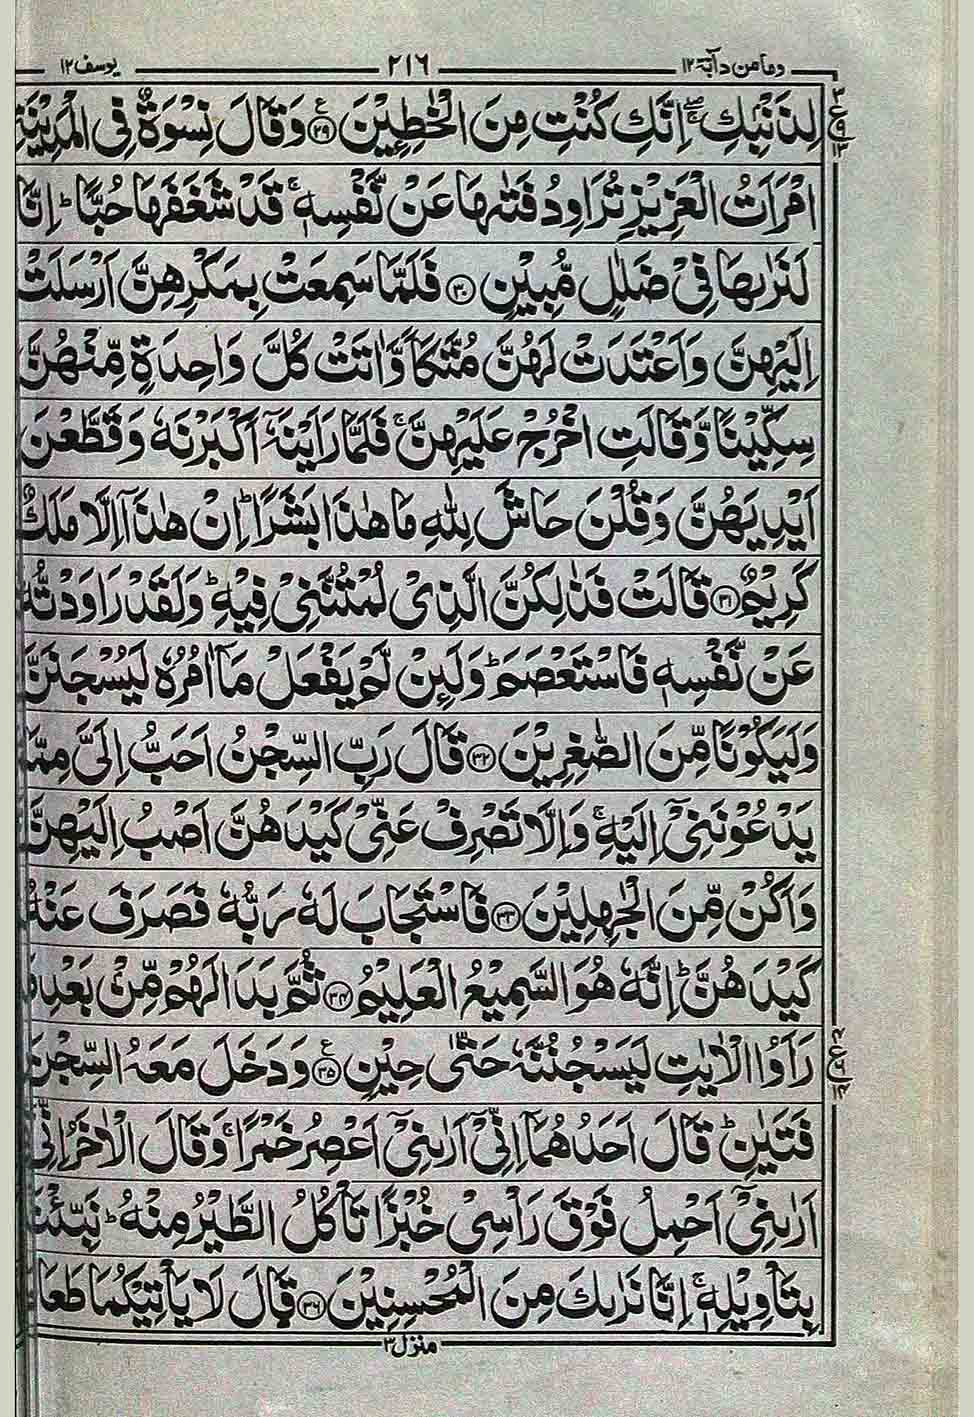 وما من دآبة ۱۲ ۲۱۶ یوسف ۱۲
لِذَنْۢبِكِ ۚۖ اِنَّكِ كُنْتِ مِنَ الْخٰطِـِٕيْنَ ﴿۲۹﴾ ع وَقَالَ نِسْوَةٌ فِى الْمَدِيْنَةِ
امْرَاَتُ الْعَزِيْزِ تُرَاوِدُ فَتٰىهَا عَنْ نَّفْسِهٖ ۚ قَدْ شَغَفَهَا حُبًّا ؕ اِنَّا
لَنَرٰىهَا فِىْ ضَلٰلٍ مُّبِيْنٍ ﴿۳۰﴾ فَلَمَّا سَمِعَتْ بِمَكْرِهِنَّ اَرْسَلَتْ
اِلَيْهِنَّ وَاَعْتَدَتْ لَهُنَّ مُتَّكَاً وَّاٰتَتْ كُلَّ وَاحِدَةٍ مِّنْهُنَّ
سِكِّيْنًا وَّقَالَتِ اخْرُجْ عَلَيْهِنَّ ۚ فَلَمَّا رَاَيْنَهٗۤ اَكْبَرْنَهٗ وَقَطَّعْنَ
اَيْدِيَهُنَّ وَقُلْنَ حَاشَ لِلّٰهِ مَا هٰذَا بَشَرًا ؕ اِنْ هٰذَاۤ اِلَّا مَلَكٌ
كَرِيْمٌ ﴿۳۱﴾ قَالَتْ فَذٰلِكُنَّ الَّذِىْ لُمْتُنَّنِىْ فِيْهِ ؕ وَلَقَدْ رَاوَدْتُّهٗ
عَنْ نَّفْسِهٖ فَاسْتَعْصَمَ ؕ وَلَىِٕنْ لَّمْ يَفْعَلْ مَاۤ اٰمُرُهٗ لَيُسْجَنَنَّ
وَلَيَكُوْنًا مِّنَ الصّٰغِرِيْنَ ﴿۳۲﴾ قَالَ رَبِّ السِّجْنُ اَحَبُّ اِلَىَّ مِمَّا
يَدْعُوْنَنِىْۤ اِلَيْهِ ۚ وَاِلَّا تَصْرِفْ عَنِّىْ كَيْدَهُنَّ اَصْبُ اِلَيْهِنَّ
وَاَكُنْ مِّنَ الْجٰهِلِيْنَ ﴿۳۳﴾ فَاسْتَجَابَ لَهٗ رَبُّهٗ فَصَرَفَ عَنْهُ
كَيْدَهُنَّ ؕ اِنَّهٗ هُوَ السَّمِيْعُ الْعَلِيْمُ ﴿۳۴﴾ ثُمَّ بَدَا لَهُمْ مِّنْۢ بَعْدِ
رَاَوُا الْاٰيٰتِ لَيَسْجُنُنَّهٗ حَتّٰى حِيْنٍ ﴿۳۵﴾ ع وَدَخَلَ مَعَهُ السِّجْنَ
فَتَيٰنِ ؕ قَالَ اَحَدُهُمَاۤ اِنِّىْۤ اَرٰىنِىْۤ اَعْصِرُ خَمْرًا ۚ وَقَالَ الْاٰخَرُ اِنِّىْۤ
اَرٰىنِىْۤ اَحْمِلُ فَوْقَ رَاْسِىْ خُبْزًا تَاْكُلُ الطَّيْرُ مِنْهُ ؕ نَبِّئْنَا
بِتَاْوِيْلِهٖ ۚ اِنَّا نَرٰىكَ مِنَ الْمُحْسِنِيْنَ ﴿۳۶﴾ قَالَ لَا يَاْتِيْكُمَا طَعَامٌ
منزل ۳